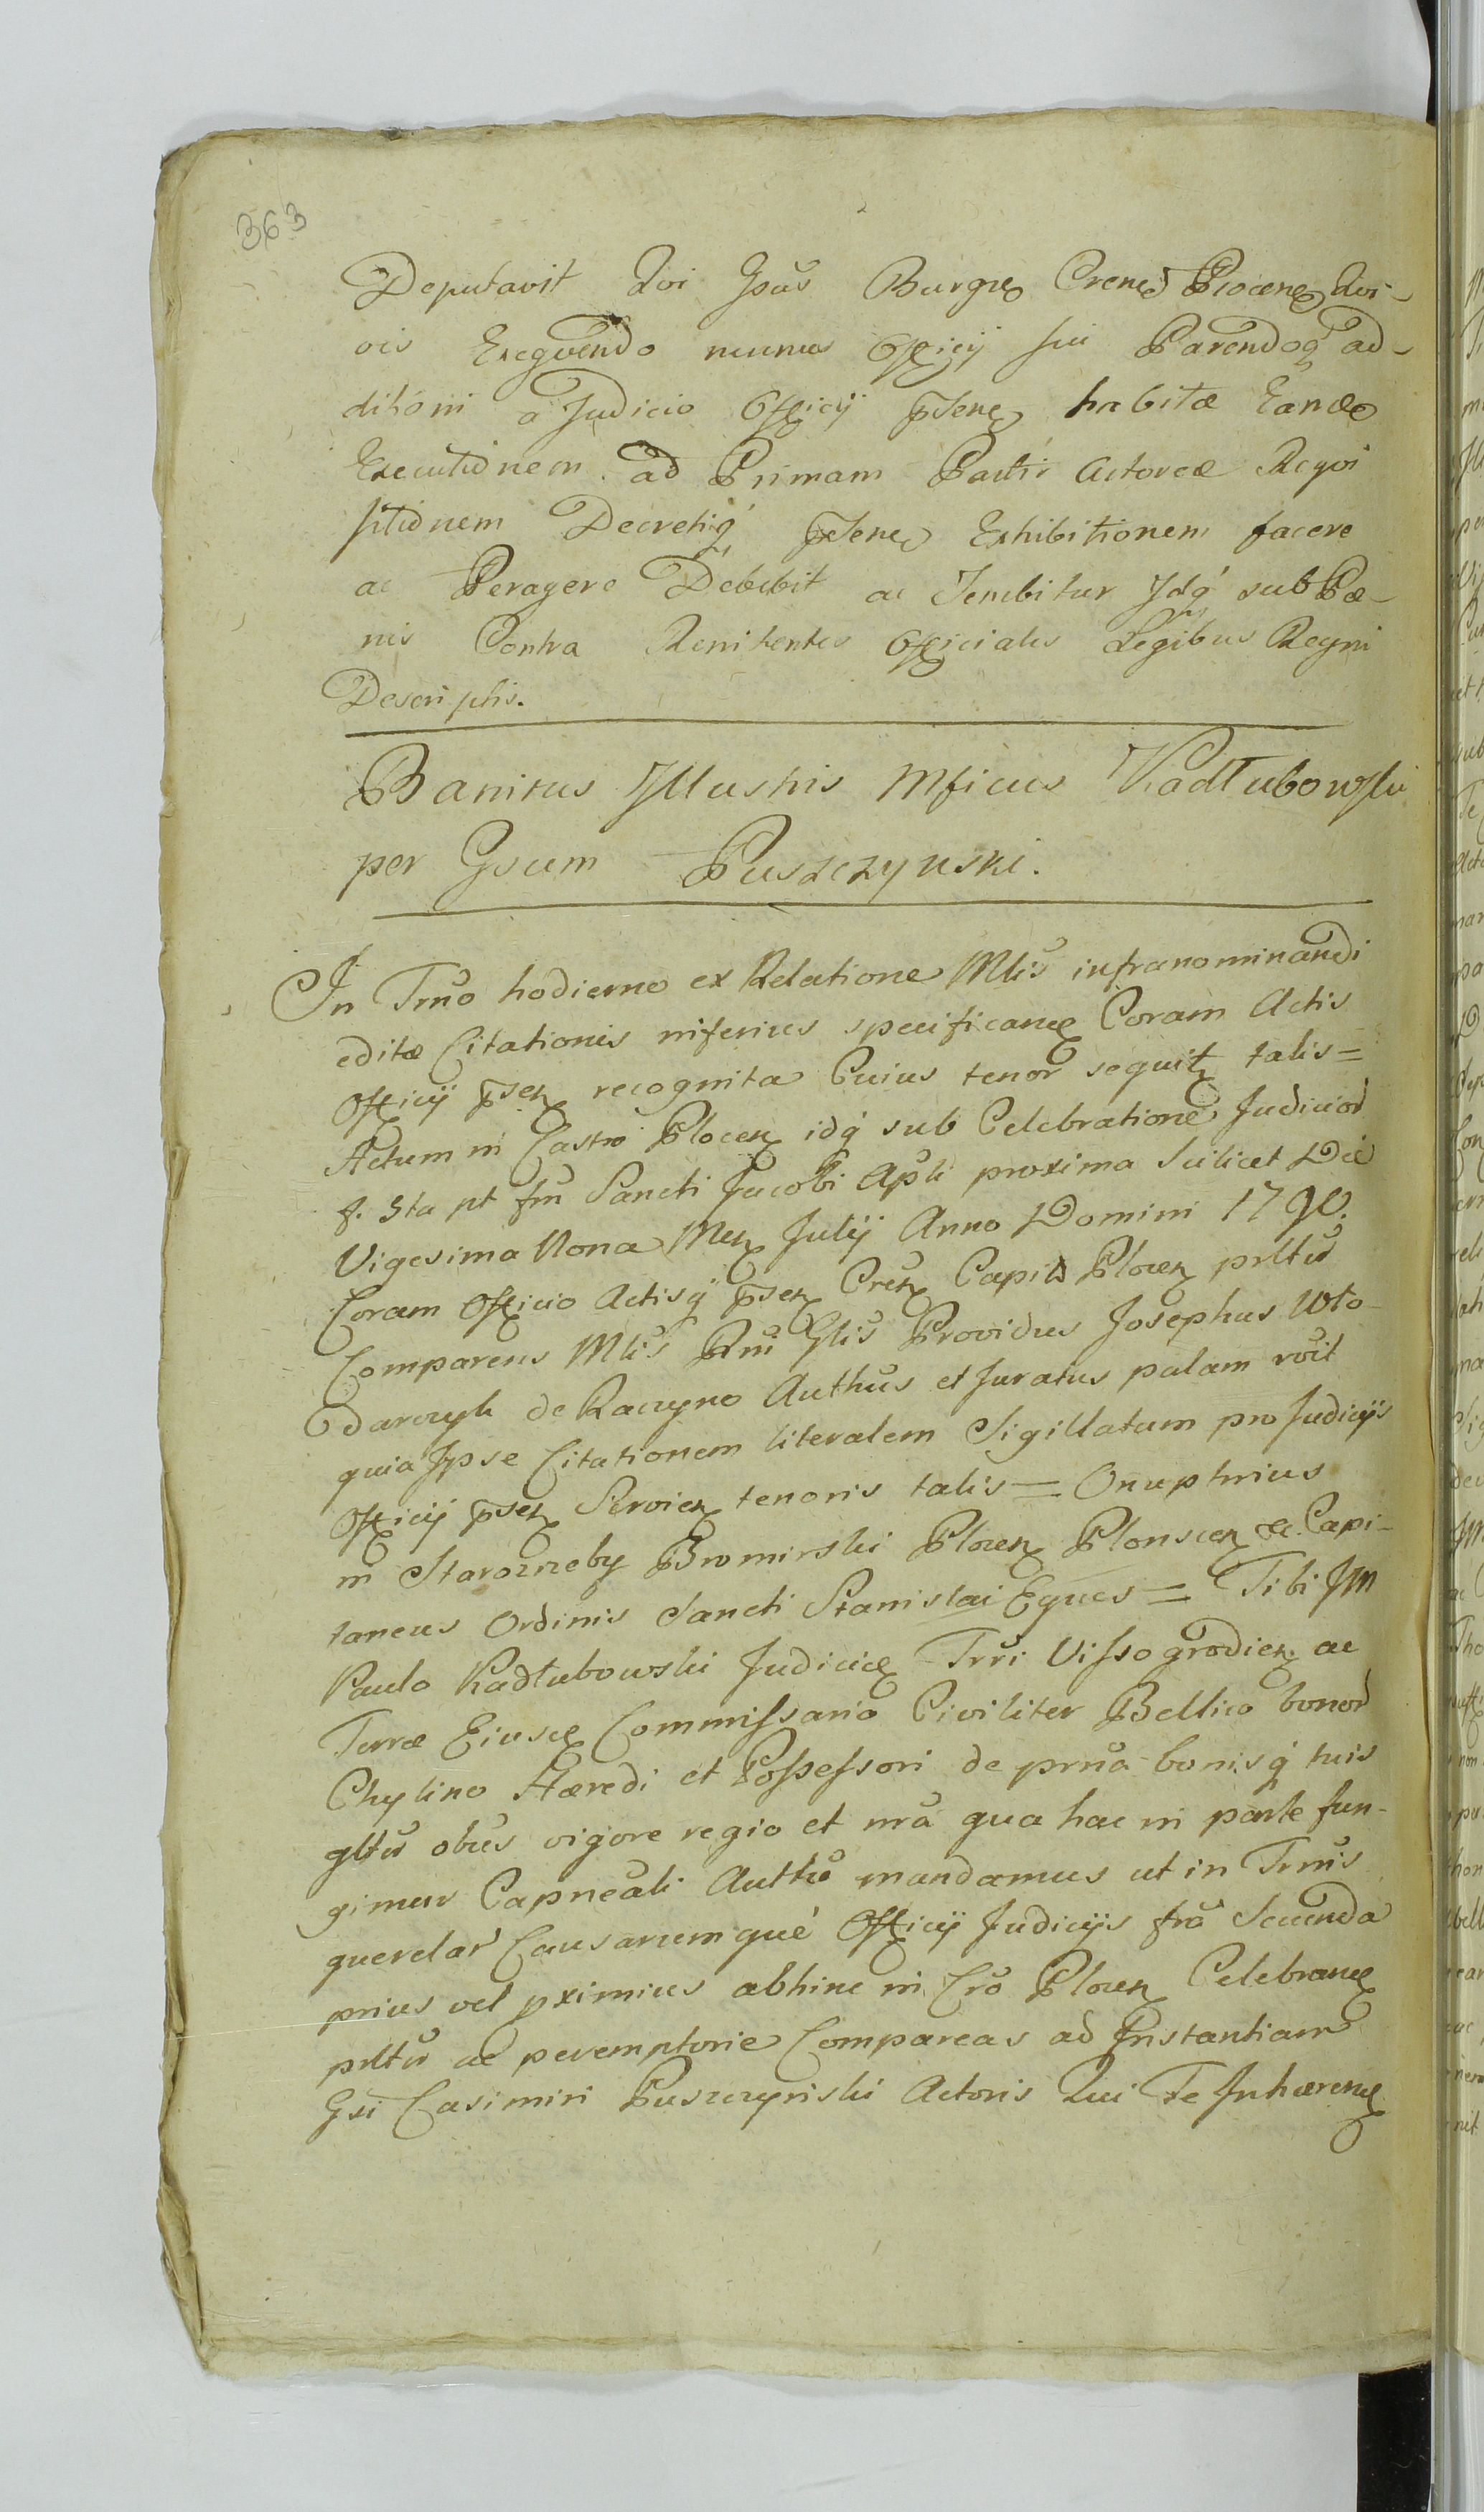 363
Deputavit Qvi Gsus Burgus Crene Plocen Qvi-
vis Exeqvendo munus Officij sui Parendoq ad-
ditioni a Judicio Officij psen habitæ Eande
Executionem ad Primam Partis Actoreæ Reqvi
sitionem Decretiq psen Exhibitionem facere
ac Peragere Debebit ac Tenebitur Jdq sub Pæ-
nis Contra Renitentes Officiales Legibus Regni
Descriptis.
Banitus Jllustris Mficus Kadłubowski
per Gsum Puszczynski.
Jn Trno hodierno ex Relatione Mlis infranominandi
editæ Citationis inferius specificane Coram Actis
Officij psen recognita Cuius tenor sequit talis =
Actum in Castro Plocen idq sub Celebratione Judicior
f. 5ta pt fm Sancti Jacobi Apli proxima Scilicet Die
Vigesima Nona Men Julij Anno Domini 1790.
Coram Officio Actisq psen Cren Capit Plocen prltr
Comparens Mlis Rni Glis Providus Josephus Wło-
darczyk de Raczyno Authus et Juratus palam rvit
quia Jpse Citationem literalem Sigillatam pro Judicijs
Officij psen Servien tenoris talis = Onuphrius
in Starozreby Bromirski Plocen Plonscen &c. Capi-
taneus Ordinis Sancti Stanislai Eques = Tibi JM
Paulo Kadłubowski Judici Trri Vissogrodien ac
Terræ Eiusd Commissario Civiliter Bellico bonor
Chylino Hæredi et Possessori de prna bonisq tuis
gltr obus vigore regio et nra qua hac in parte fun-
gimur Capneali Autthe mandamus ut in Trnis
querelar Causarumque Officij Judicijs fra Secunda
prius vel pximius abhinc in Cro Plocen Celebrand
prltr ac peremptorie Compareas ad Jnstantiam
Gsi Casimiri Puszczynski Actoris Qui Te Jnhærend